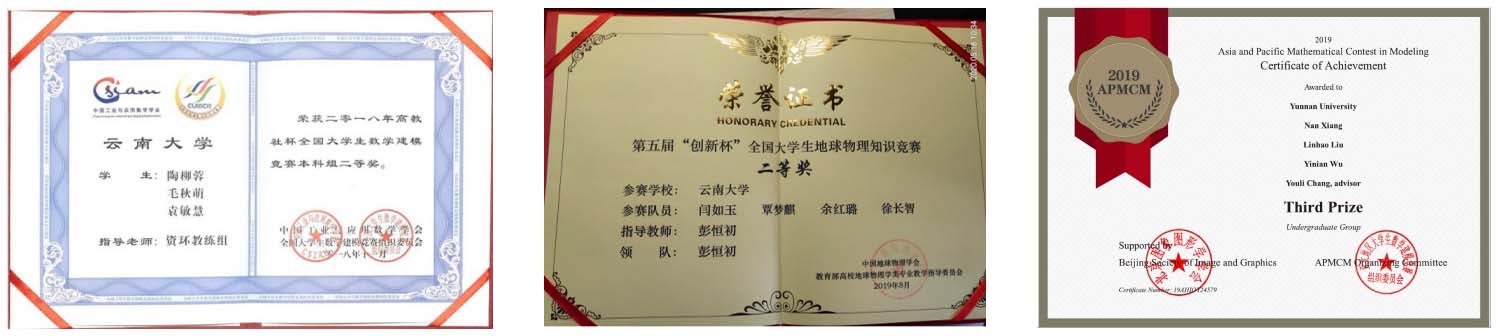 Csiam
中国工业与应用数学学会
CUMCM
云南大学
学 生：陶柳蓉
毛秋萌
袁敏慧
指导老师：资环教练组
荣获二零一八年高教
社杯全国大学生数学建模
竞赛本科组二等奖。
中国工业与应用数学学会
全国大学生数学建模竞赛组织委员会
荣誉证书
HONORARY CREDENTIAL
第五届“创新杯”全国大学生地球物理知识竞赛
二等奖
参赛学校： 云南大学
参赛队员： 闫如玉 覃梦麒 余红璐 徐长智
指导教师： 彭恒初
领 队： 彭恒初
中国地球物理学会
教育部高校地球物理学类专业教学指导委员会
2019年8月
2019
APMCM
2019
Asia and Pacific Mathematical Contest in Modeling
Certificate of Achievement
Awarded to
Yunnan University
Nan Xiang
Linhao Liu
Yinian Wu
Youli Chang, advisor
Third Prize
Undergraduate Group
Supported by
Beijing Society of Image and Graphics
APMCM Organizing Committee
Certificate Number: